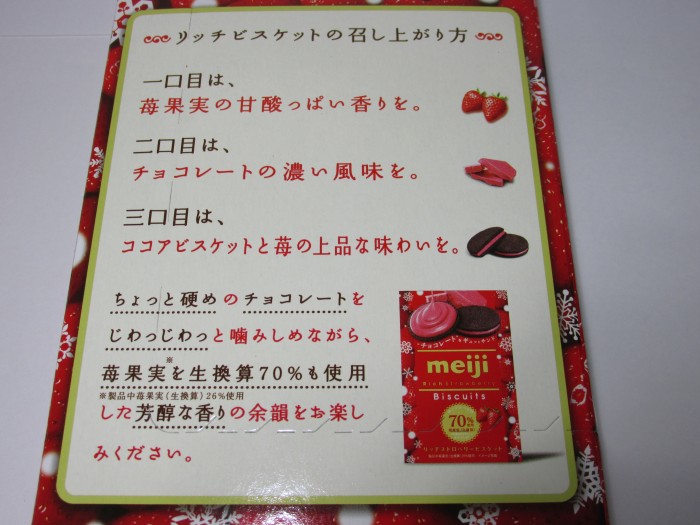 リッチビスケットの召し上がり方
一口目は、
苺果実の甘酸っぱい香りを。
二口目は、
チョコレートの濃い風味を。
三口目は、
ココアビスケットと苺の上品な味わいを。
ちょっと硬めのチョコレートを
じわっじわっと噛みしめながら、
※
苺果実を生換算70%も使用
※製品中苺果実(生換算)26%使用
した芳醇な香りの余韻をお楽し
みください。
meiji
Rich strawberry
Biscuits
70%
リッチストロベリービスケット